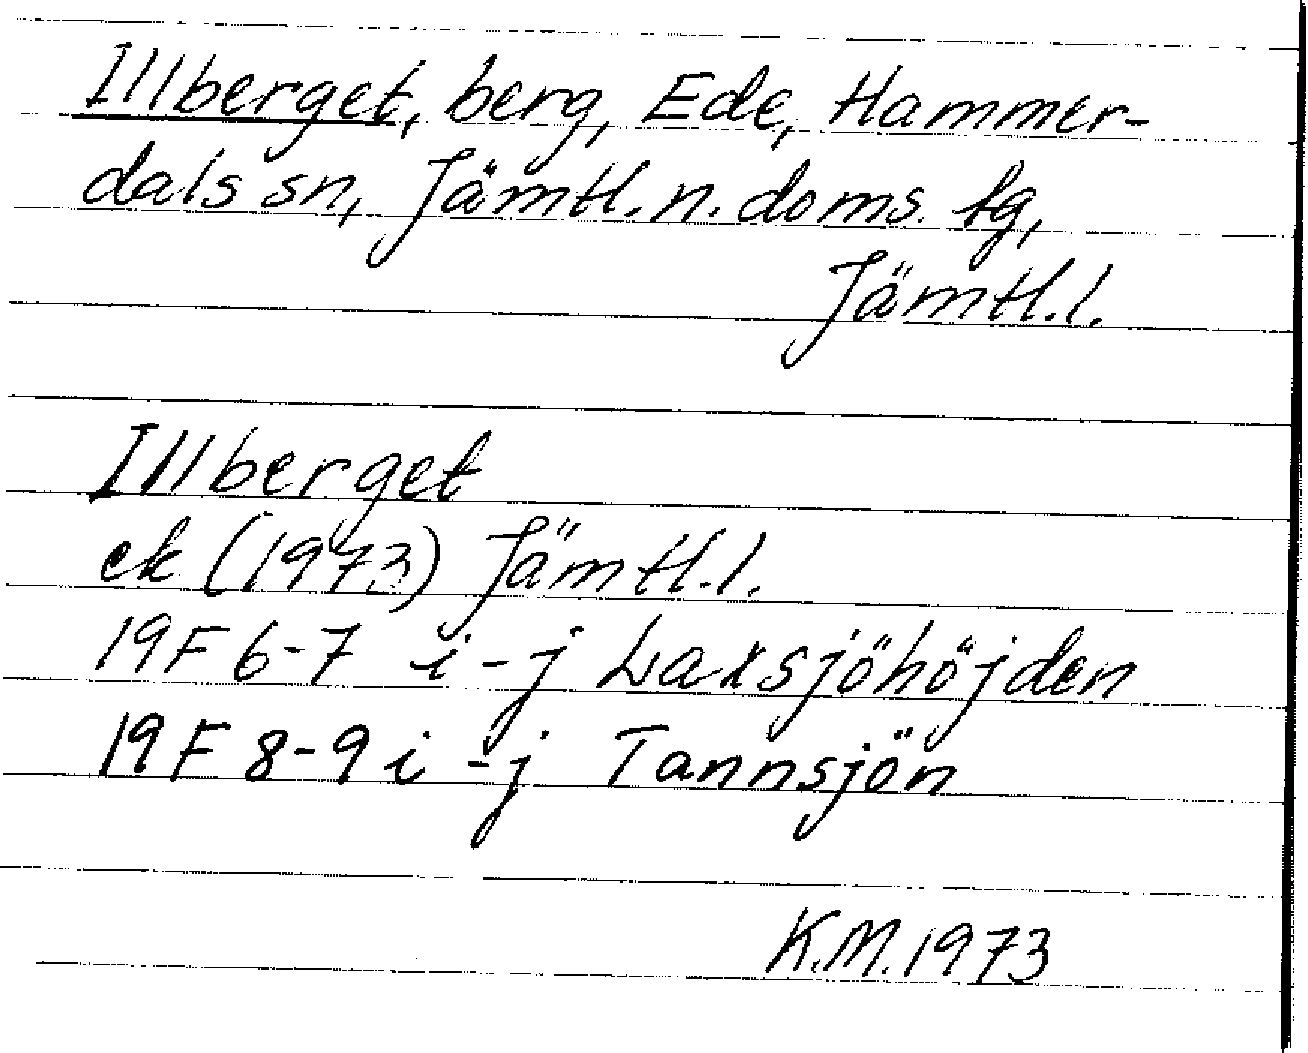 Illberget, berg, Ede, Hammer-
dals sn, Jämtl. n. doms. tg,
Jämtl. l.
Illberget
ek (1973) Jämtl. l.
19F 6-7 i-j Laxsjöhöjden
19F 8-9 i-j Tannsjön
K.M. 1973